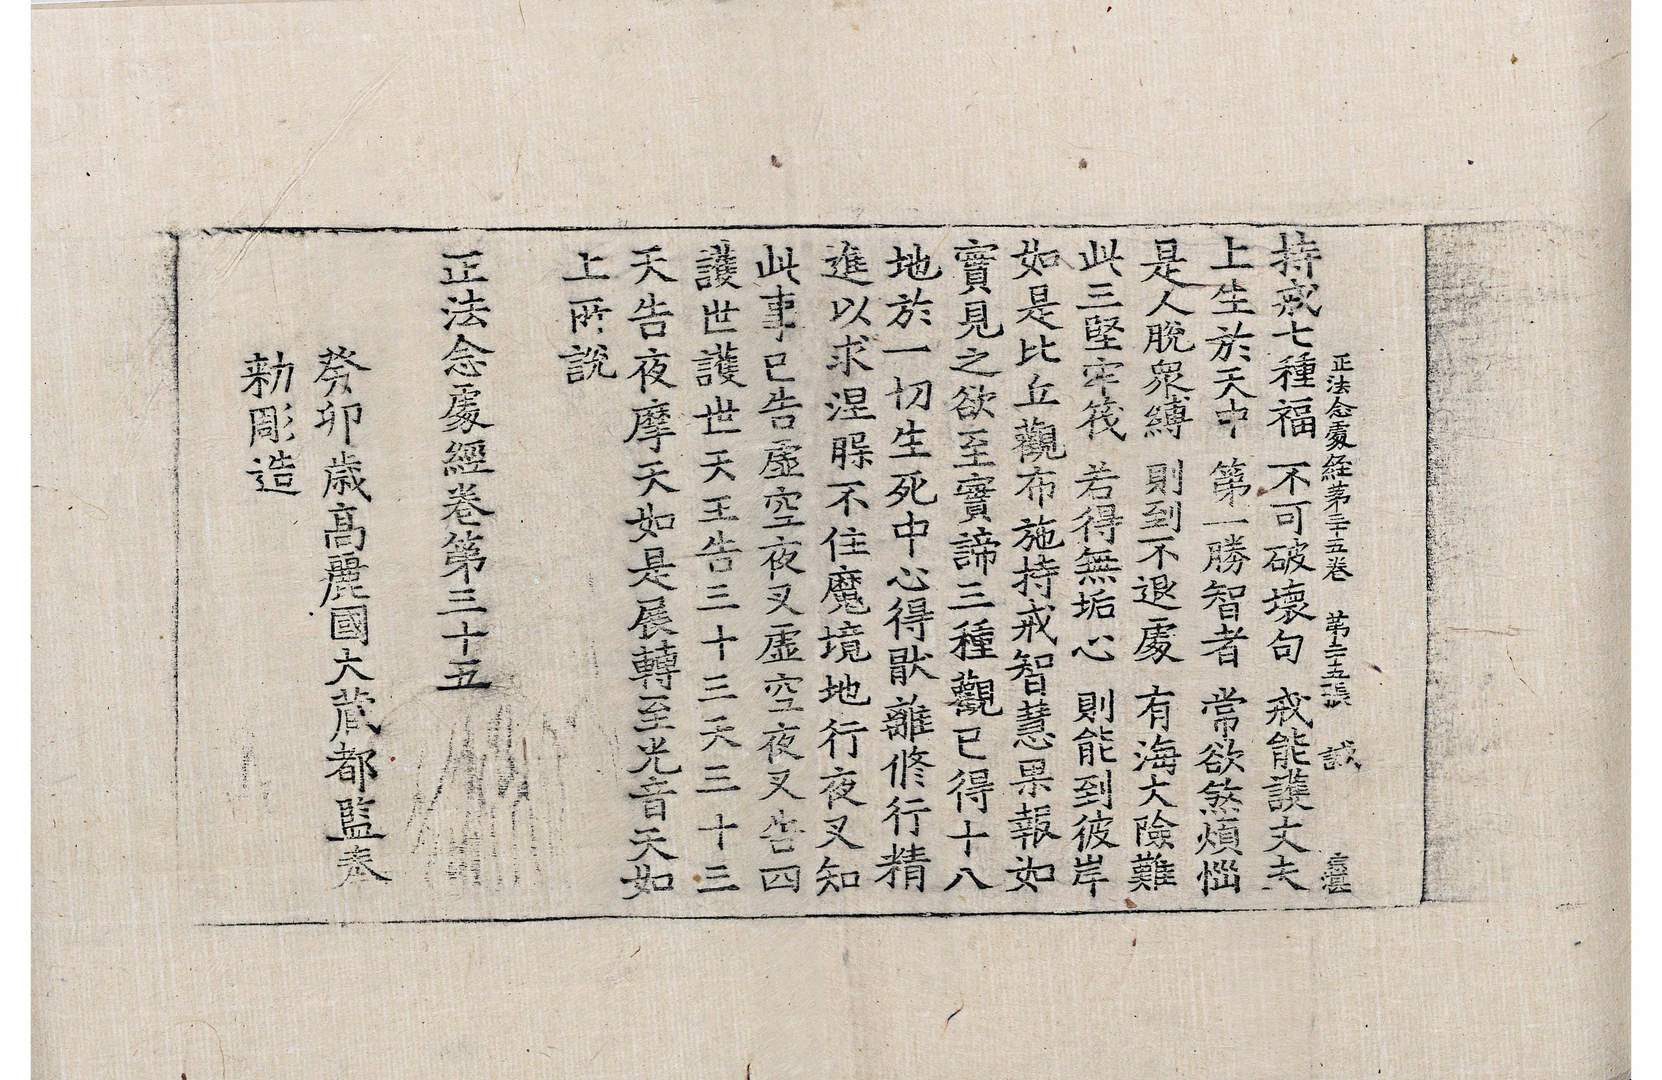 正法念處経第三十五卷 第二十五張 誠
持戒七種福 不可破壞句 戒能護丈夫
上生於天中 第一勝智者 常欲煞煩惱
是人脫衆縛 則到不退處 有海大險難
此三堅牢筏 若得無垢心 則能到彼岸
如是比丘觀布施持戒智慧果報如
實見之欲至實諦三種觀已得十八
地於一切生死中心得猒離修行精
進以求涅槃不住魔境地行夜叉知
此事已告虛空夜叉虛空夜叉告四
護世護世天王告三十三天三十三
天告夜摩天如是展轉至光音天如
上所說
正法念處經卷第三十五
癸卯歳高麗國大藏都監奉
勑彫造